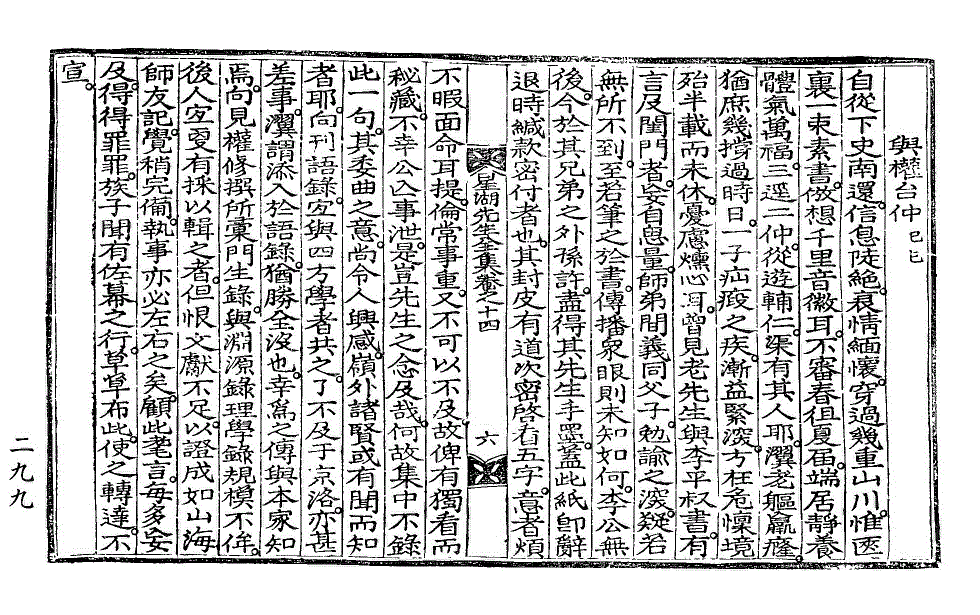 與權台仲 己巳
自從下史南還。信息陡絶。哀情緬懷。穿過幾重山川。惟匧
裏一束素書。倣想千里音徽耳。不審春徂夏届。端居靜養
體氣萬福。三逕二仲。從遊輔仁。渠有其人耶。瀷老軀羸癃。
猶庶幾撐過時日。一子疝痎之疾。漸益緊深。方在危懍境
殆半載而未休。憂慮爞心耳。曾見老先生與李平叔書。有
言及閨門者。妄自慁量。師弟間義同父子。勉諭之深。疑若
無所不到。至若筆之於書。傳播衆眼則未知如何。李公無
後。今於其兄弟之外孫許。盡得其先生手墨。蓋此紙卽辭
退時緘款密付者也。其封皮有道次密啓看五字。意者煩
不暇面命耳提。倫常事重。又不可以不及。故俾有獨看而
秘藏。不幸公亾事泄。是豈先生之念及哉。何故集中不錄
此一句。其委曲之意。尚令人興感。嶺外諸賢或有聞而知
者耶。向刊語錄。宜與四方學者共之。了不及于京洛。亦甚
差事。瀷謂添入於語錄。猶勝全沒也。幸爲之傳與本家知
焉。向見權修撰所彙門生錄。與淵源錄理學錄規模不侔。
後人宜更有採以輯之者。但恨文獻不足。以證成如山海
師友記。覺稍完備。執事亦必左右之矣。顧此耄言。每多妄
及。得得罪罪。族子聞有佐幕之行。草草布此。使之轉達。不
宣。
星湖先生全集卷之十四 六
二九九